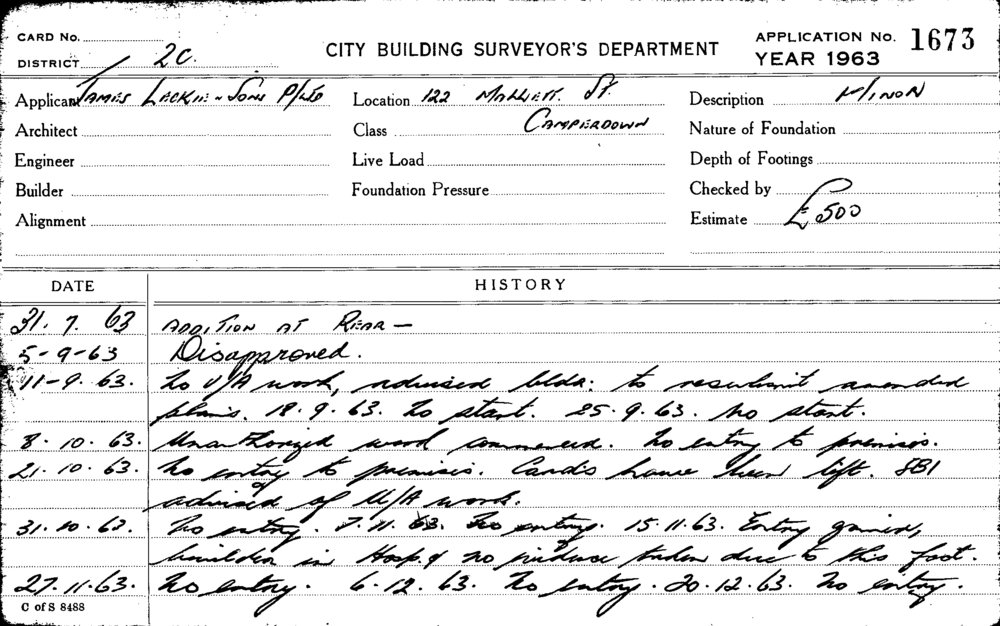 CARD No.
DISTRICT 2C.
CITY BUILDING SURVEYOR'S DEPARTMENT
APPLICATION No. 1673
YEAR 1963
Applicant James Leckie & Sons P/Ltd Location 122 Mallett St Description Minor
Architect Class Camperdown Nature of Foundation
Engineer Live Load Depth of Footings
Builder Foundation Pressure Checked by
Alignment Estimate £500
DATE HISTORY
31. 7. 63 ADDITION AT REAR —
5-9-63 Disapproved.
11-9. 63. No U/A work, advised bldr. to resubmit amended
plans. 18. 9. 63. No start. 25. 9. 63. No start.
8. 10. 63. Unauthorized work commenced. No entry to premises.
21. 10. 63. No entry to premises. Cards have been left. SBI
advised of U/A work.
31. 10. 63. No entry. 7. 11. 63. No entry. 15. 11. 63. Entry gained,
builder in Hosp. & no taken due to this fact.
27. 11. 63. No entry. 6. 12. 63. No entry. 20. 12. 63. No entry.
C of S 8488